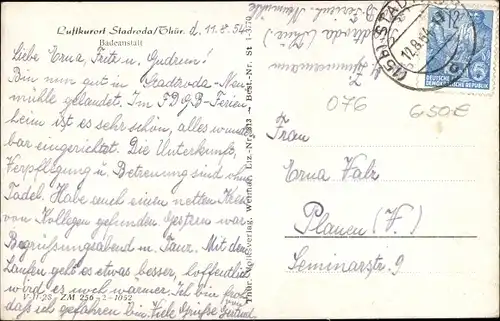 Luftkurort Stadroda/Thür. d. 11.8.54
Badeanstalt
Liebe Erna, Fritz u. Gudrun!
Bin nun gut in Stadtroda-Neu-
mühle gelandet. Im FDGB-Ferien-
heim ist es sehr schön, alles wunder-
bar eingerichtet. Die Unterkunft,
Verpflegung u. Betreuung sind ohne
Tadel. Habe auch einen netten Kreis
von Kollegen gefunden. Gestern war
Begrüßungsabend m. Tanz. Mit dem
Laufen geht es etwas besser, hoffentlich
wird es noch wärmer. Ich bin froh,
daß ich gefahren bin. Viele Grüße Gertrud
V-11-28 - ZM 256 - 2 - 1052
Thür. Volksverlag, Weimar, Liz.-Nr. 313 - Best.-Nr. St 1/3270
Stadtroda (Thür.)
(15b) STADTRODA
12.8.54
DEUTSCHE
DEMOKRATISCHE REPUBLIK
6
076
6,50 €
Frau
Erna Walz
Plauen (V.)
Seminarstr. 9